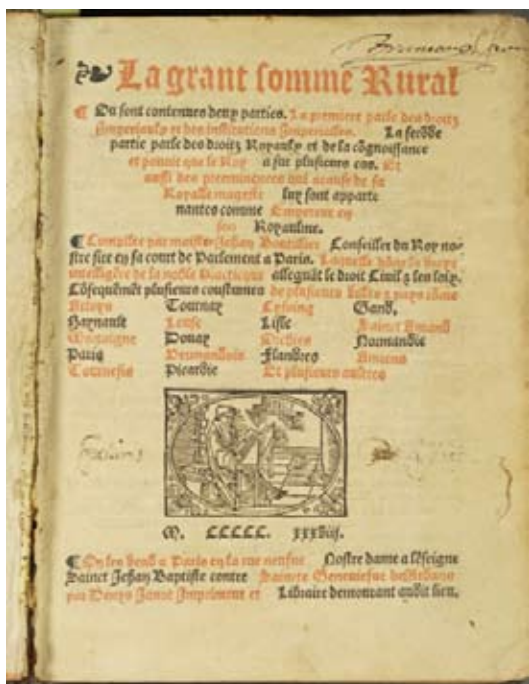 La grant somme Rural
¶ Ou sont contenues deux parties. La premiere parle des droitz
Imperiaulx et des institutions Imperialles. La secõde
partie parle des droitz Royaulx et de la cõgnoissance
et pouuoir que le Roy a sur plusieurs cas. Et
aussi des preeminences qui a cause de sa
Royalle mageste luy sont apparte
nantes comme Empereur en
son Royaulme.
¶ Compillee par maistre Jehan Bouttillier Conseiller du Roy no-
stre sire en sa court de Parlement a Paris. Laquelle dõne la vraye
intelligẽce de la noble Practicque allegnãt le droit Ciuil & les loix.
Cõsequẽmẽt plusieurs coustumes de plusieurs villes & pays cõme
Artoys Tournay Cysoing Gand.
Haynault Leuse Lisle Sainct Amand
Mortaigne Douay Orchies Normandie
Paris Vermandois Flandres Amiens
Tournesis Picardie Et plusieurs aultres
M. CCCCC. xxxviij.
¶ On les vend a Paris en la rue neufue Nostre dame a lẽseigne
Sainct Jehan Baptiste contre Saincte Geneuiefue des Ardans
par Denys Janot Imprimeur et Libraire demourant audit lieu.